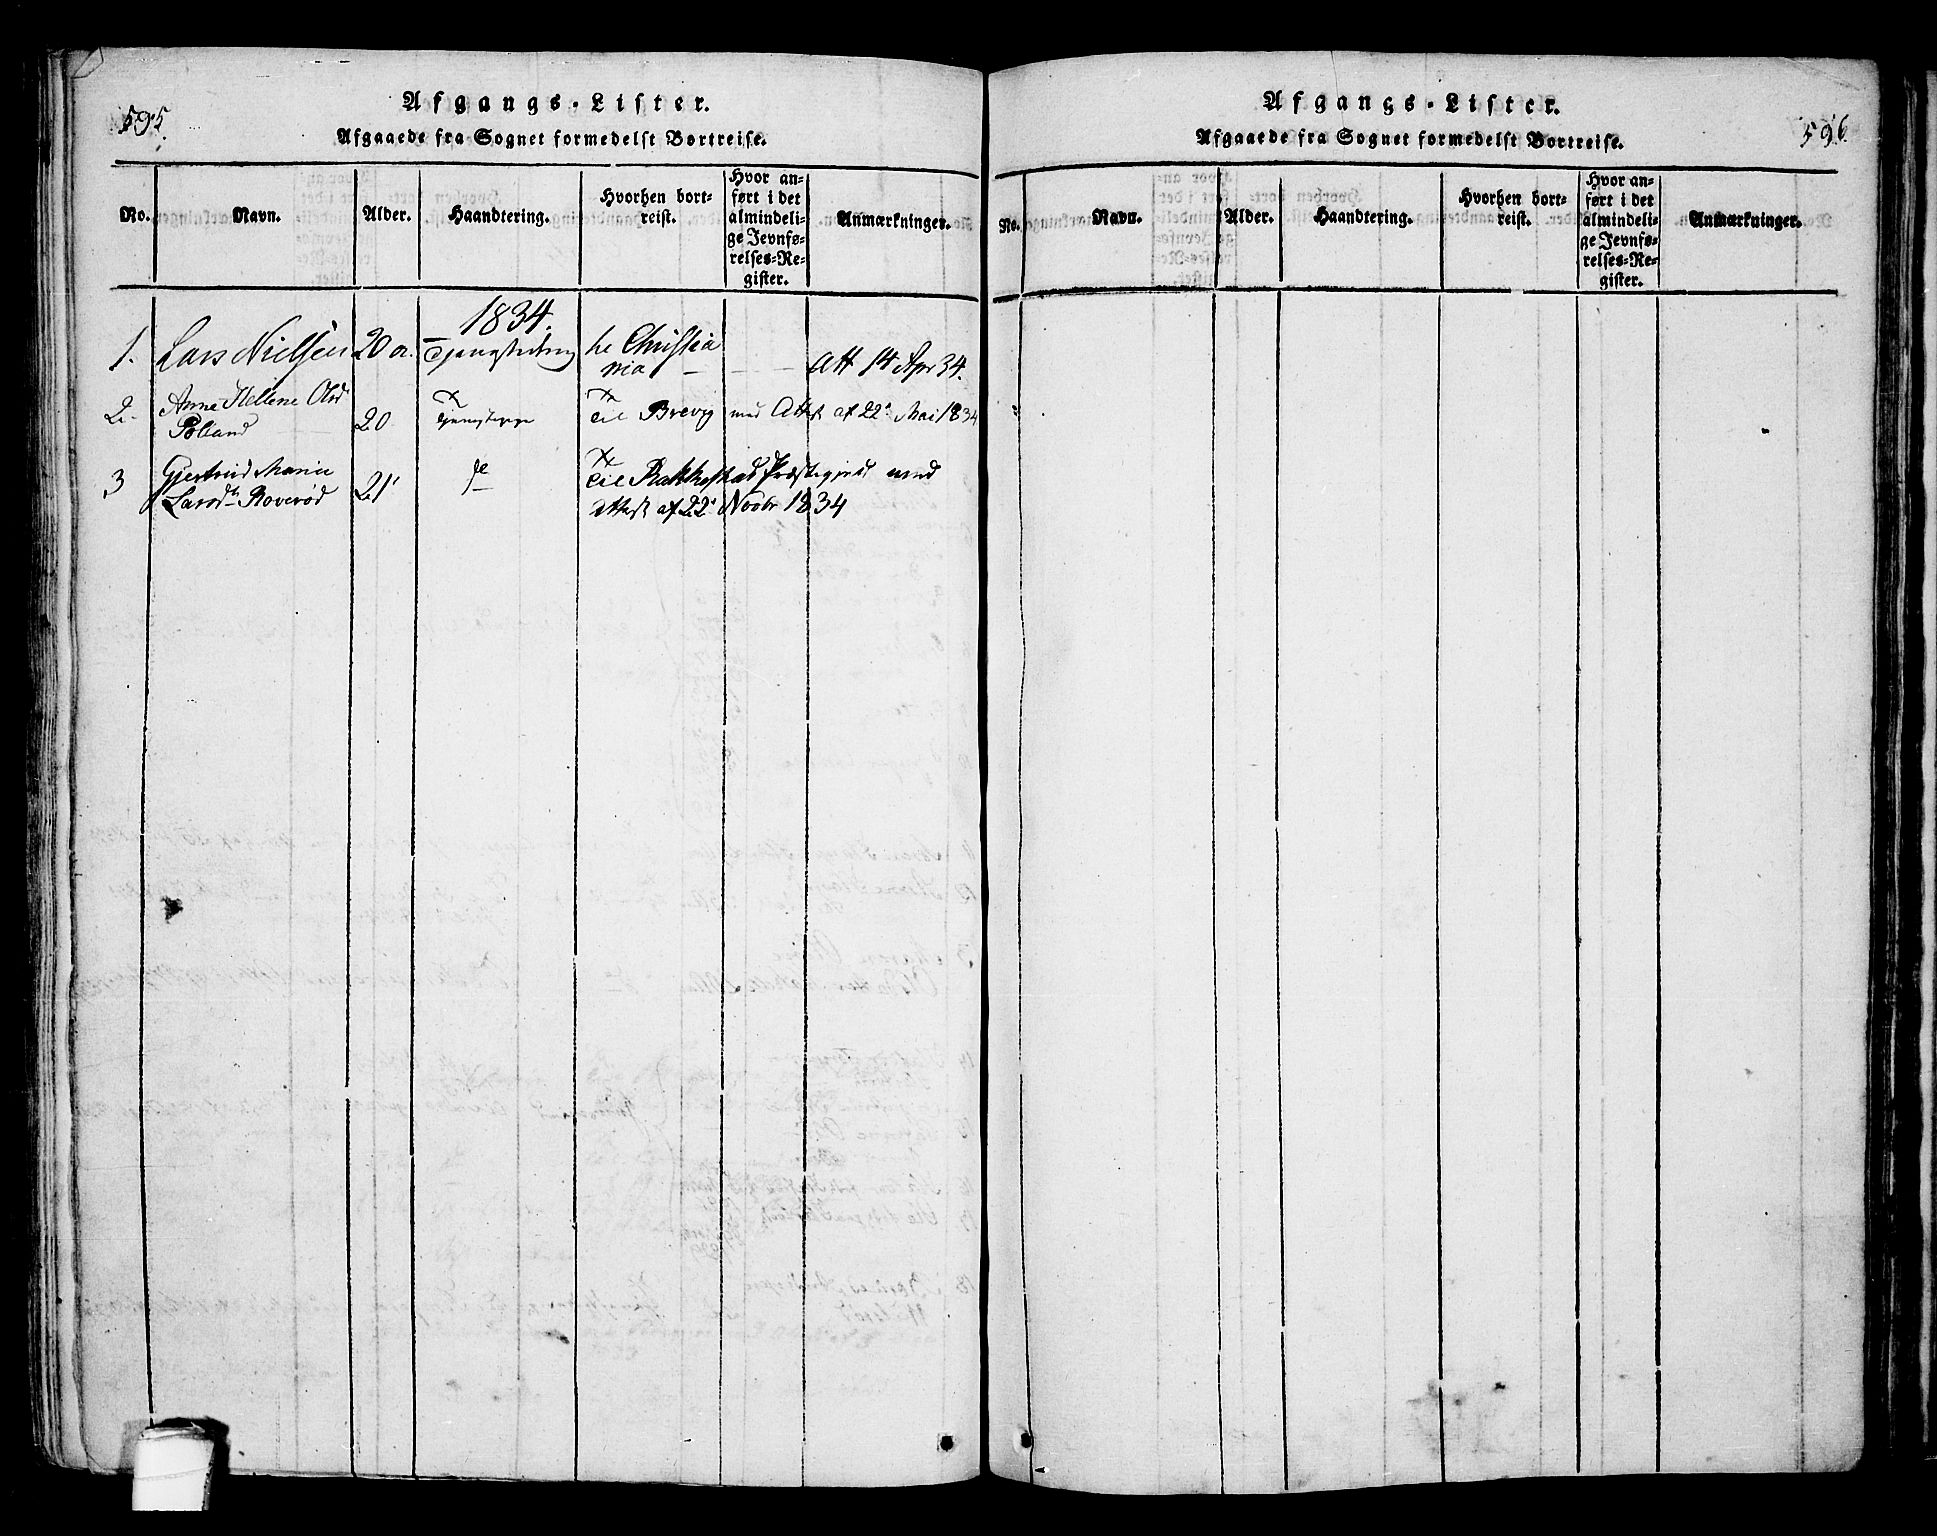 595.
Afgangs-Lister.
Afgaaede fra Sognet formedelst Bortreise.
No. Navn. Alder. Haandtering. Hvorhen bort-
reist. Hvor an-
ført i det
almindeli-
ge Jevnfø-
relses-Re-
gister. Anmærkninger.
1834.
1. Lars Nielsen 20 a. Christia
nia - Att 14 Apr 34.
2. Anne Hellene Olsd
20 Til Brevig med Attest af 22 Mai 1834
3 Gjertrud Maria
Larsd. Roverød 21 do Til Præstegjeld med
Attest af 22 Novbr 1834
Afgangs-Lister.
596.
Afgaaede fra Sognet formedelst Bortreise.
No. Navn. Alder. Haandtering. Hvorhen bort-
reist. Hvor an-
ført i det
almindeli-
ge Jevnfø-
relses-Re-
gister. Anmærkninger.